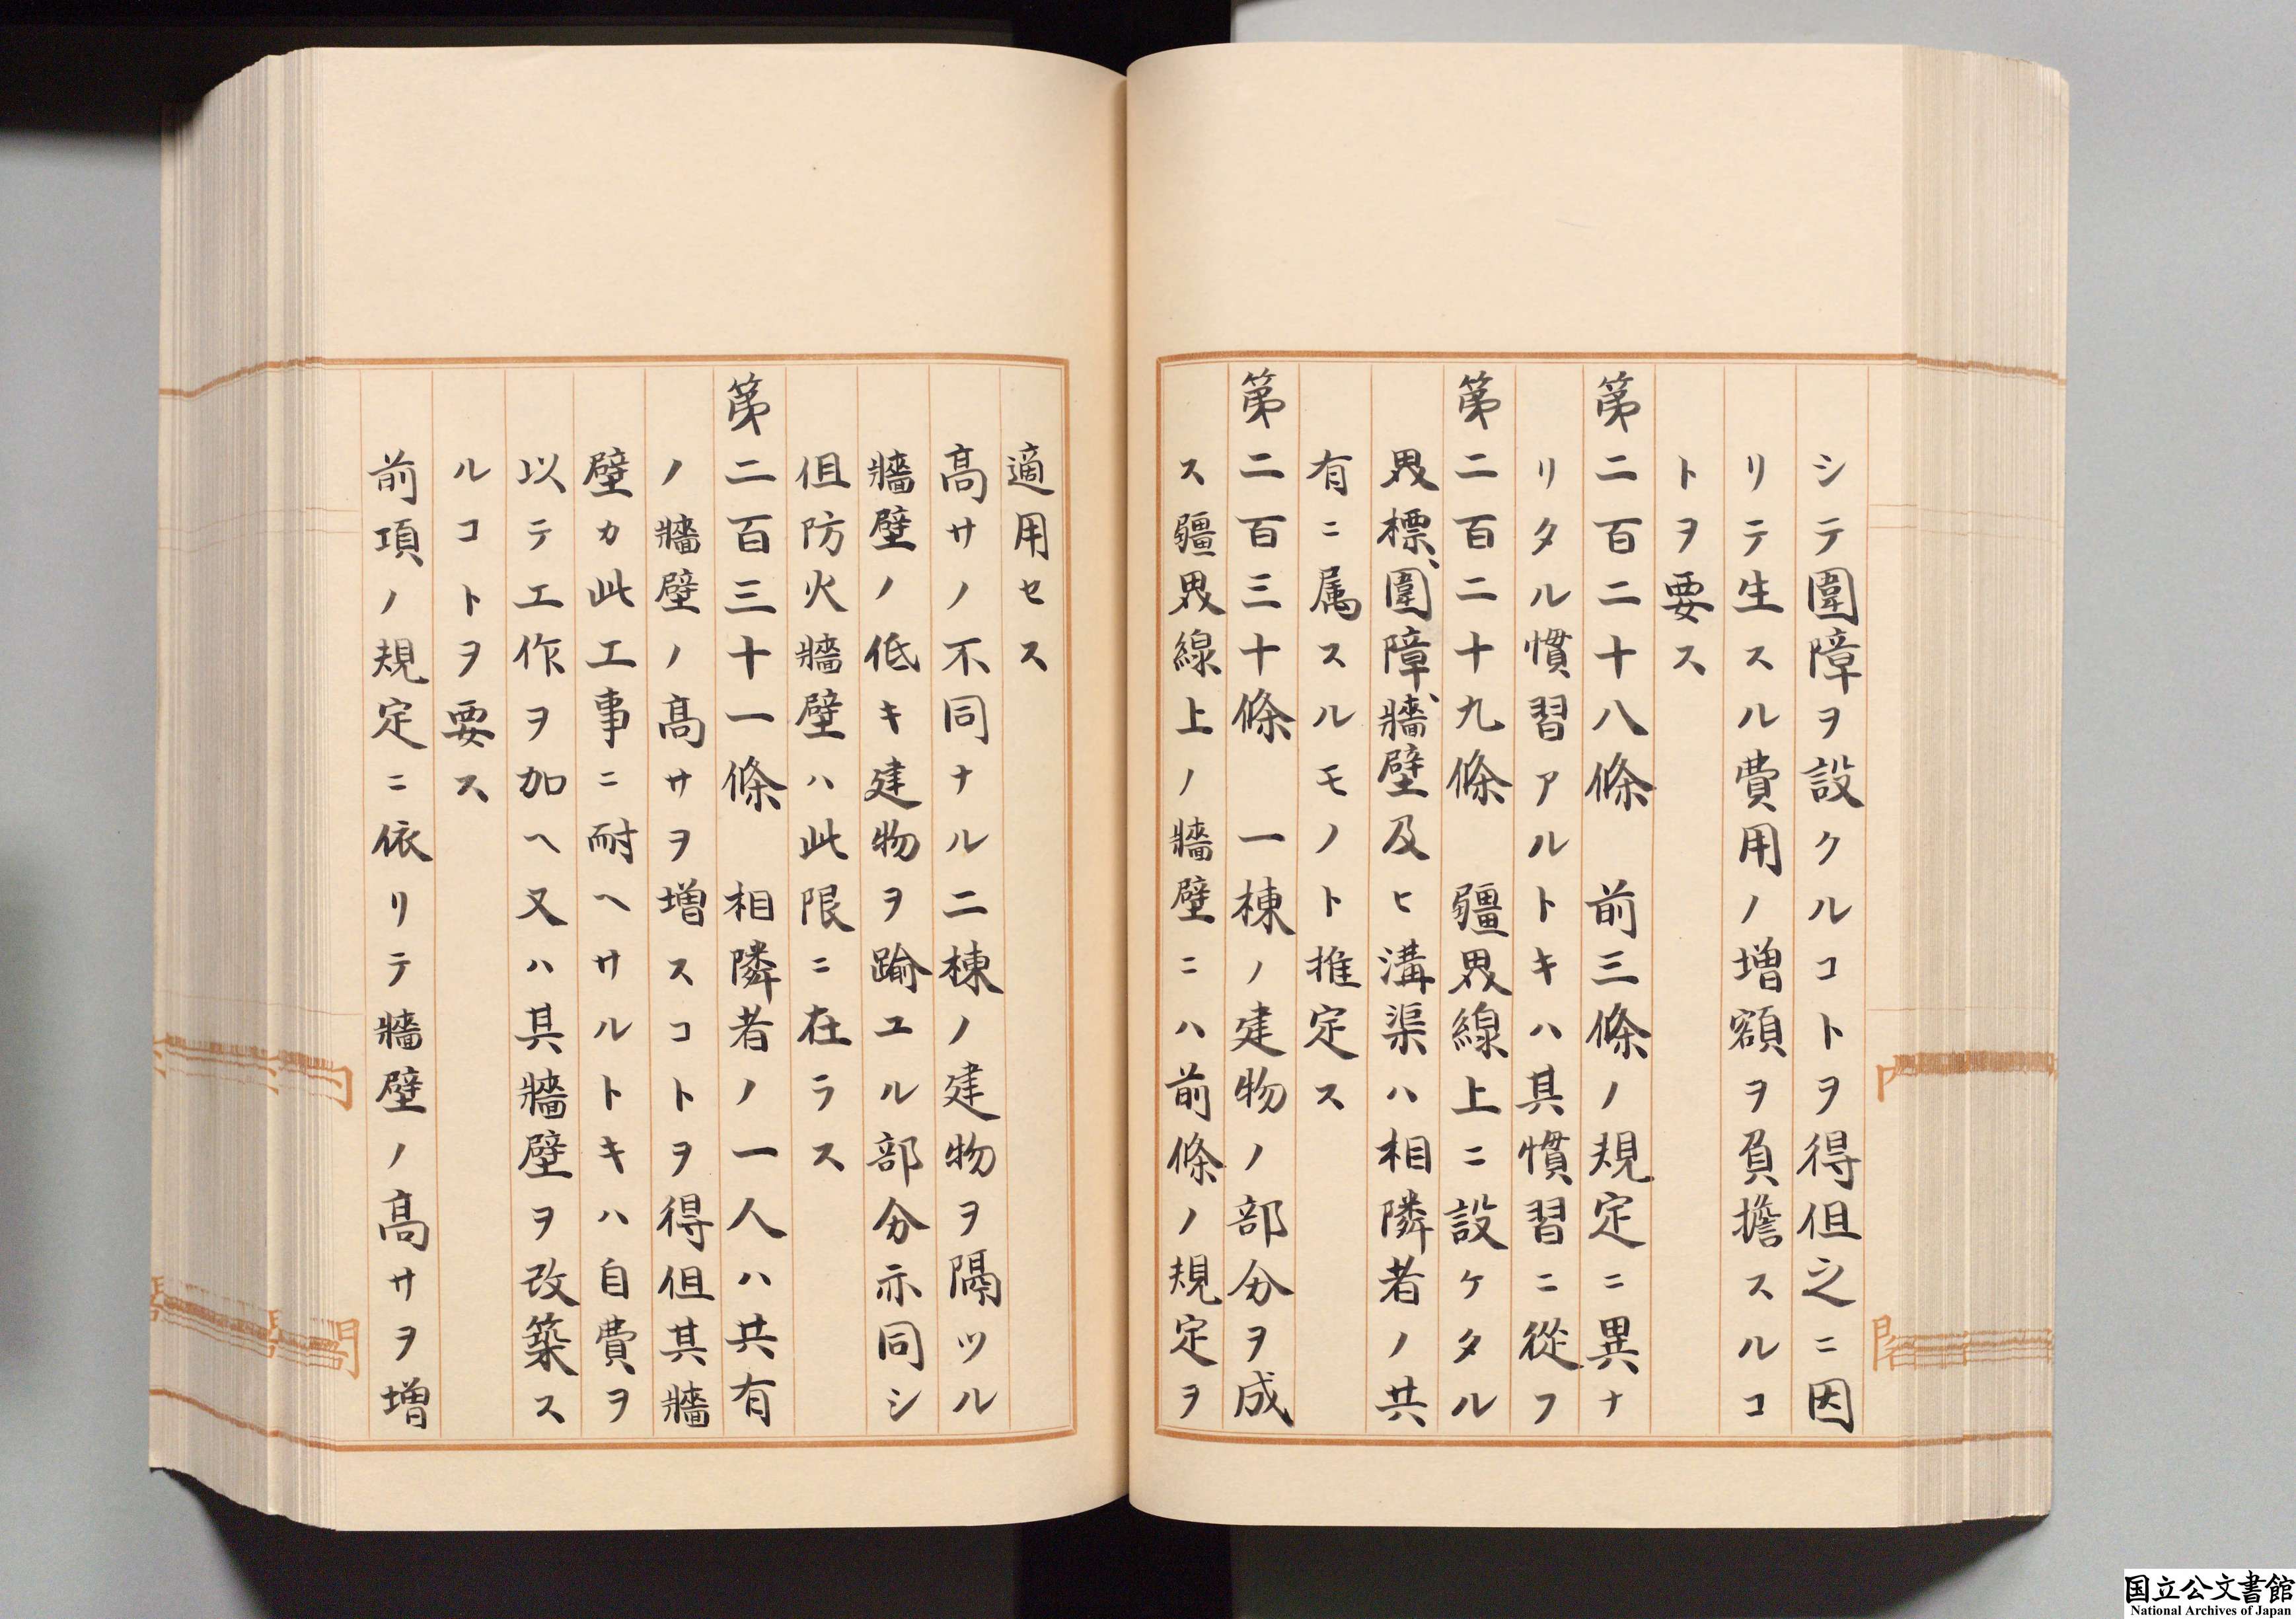 シテ圍障ヲ設クルコトヲ得但之ニ因
リテ生スル費用ノ増額ヲ負擔スルコ
トヲ要ス
第二百二十八條　前三條ノ規定ニ異ナ
リタル慣習アルトキハ其慣習ニ從フ
第二百二十九條　疆界線上ニ設ケタル
界標、圍障、牆壁及ヒ溝渠ハ相隣者ノ共
有ニ属スルモノト推定ス
第二百三十條　一棟ノ建物ノ部分ヲ成
ス疆界線上ノ牆壁ニハ前條ノ規定ヲ
適用セス
高サノ不同ナル二棟ノ建物ヲ隔ツル
牆壁ノ低キ建物ヲ踰ユル部分亦同シ
但防火牆壁ハ此限ニ在ラス
第二百三十一條　相隣者ノ一人ハ共有
ノ牆壁ノ高サヲ増スコトヲ得但其牆
壁カ此工事ニ耐ヘサルトキハ自費ヲ
以テ工作ヲ加ヘ又ハ其牆壁ヲ改築ス
ルコトヲ要ス
前項ノ規定ニ依リテ牆壁ノ高サヲ増
国立公文書館
National Archives of Japan